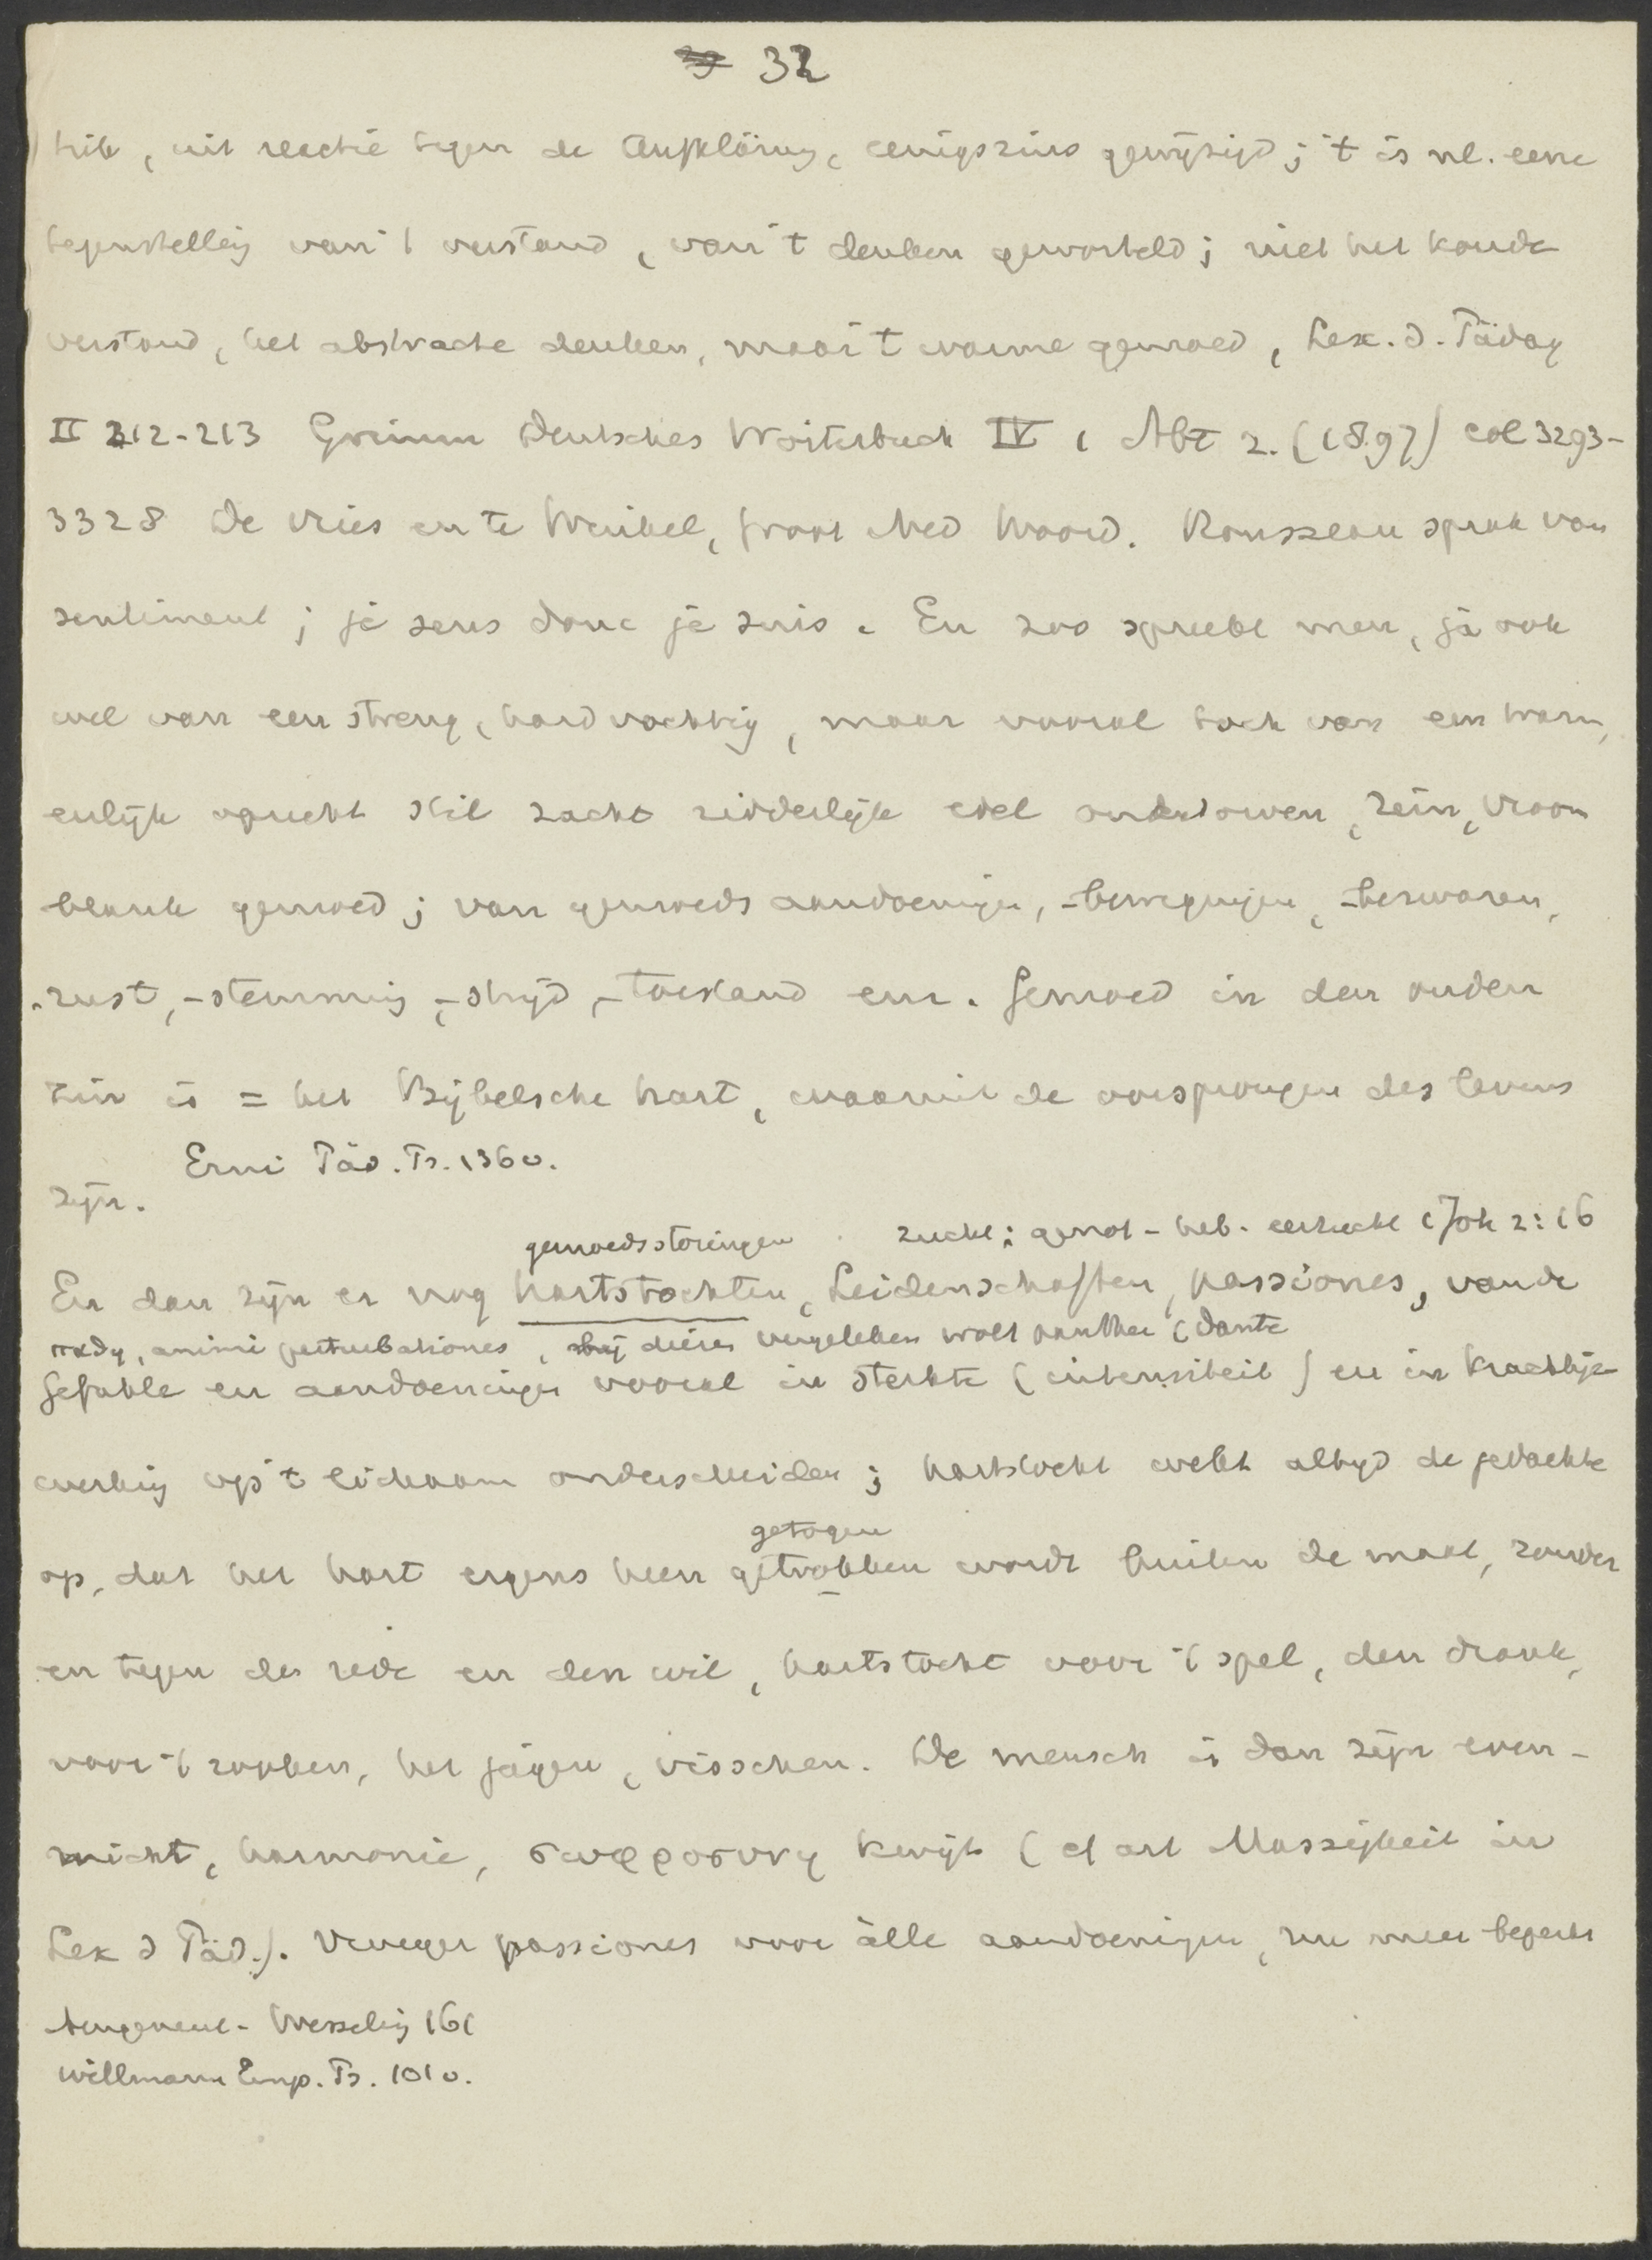 32
tiek, uit reactie tegen de Aufklärung, eenigszins gewijzigd; 't is nl. eene
tegenstelling van 't verstand, van 't denken geworden; niet het koude
verstand, het abstracte denken, maar 't warme gemoed, Lex. d. Päday
II 212-213 Grimm Deutsches Wörterbuch IV 1 Abt 2. (1897) col 3293-
3328 De Vries en te Winkel, groot Ned Woord. Rousseau sprak van
sentiment; je sens donc je suis. En zoo spreekt men, ja ook
wel van een streng, hardvochtig, maar vooral toch van een warm,
eerlijk oprecht stil zacht ridderlijk edel onbedorven, rein, vroom
blank gemoed; van gemoedsaandoeningen, -bewegingen, -bezwaren,
-rust, -stemming, -strijd, -toestand enz. Gemoed in den ouden
zin is = het Bijbelsche hart, waaruit de oorsprongen des levens
Erni Päd. Ps. 136 v.
zijn.
gemoedsstoringen zucht: genot- heb- eerzucht 1 Joh 2:16
En dan zijn er nog hartstochten, Leidenschaften, passiones, van de
παθη, animi perturbationes, bij dieren vergeleken wolf panther (Dante
Gefühle en aandoeningen vooral in sterkte (intensiteit) en in krachtige
werking op 't lichaam onderscheiden; hartstocht wekt altijd de gedachte
getogen
op, dat het hart ergens heen getrokken wordt buiten de maat, zonder
en tegen de rede en den wil, hartstocht voor 't spel, den drank,
voor 't rooken, het jagen, visschen. De mensch is dan zijn even-
wicht, harmonie, σωφροσυνη kwijt (cf art Mässigkeit in
Lex d Päd.). Vroeger passiones voor alle aandoeningen, nu meer beperkt
Jungeneel- Wesseling 161
Willmann Emp. Ps. 101 v.